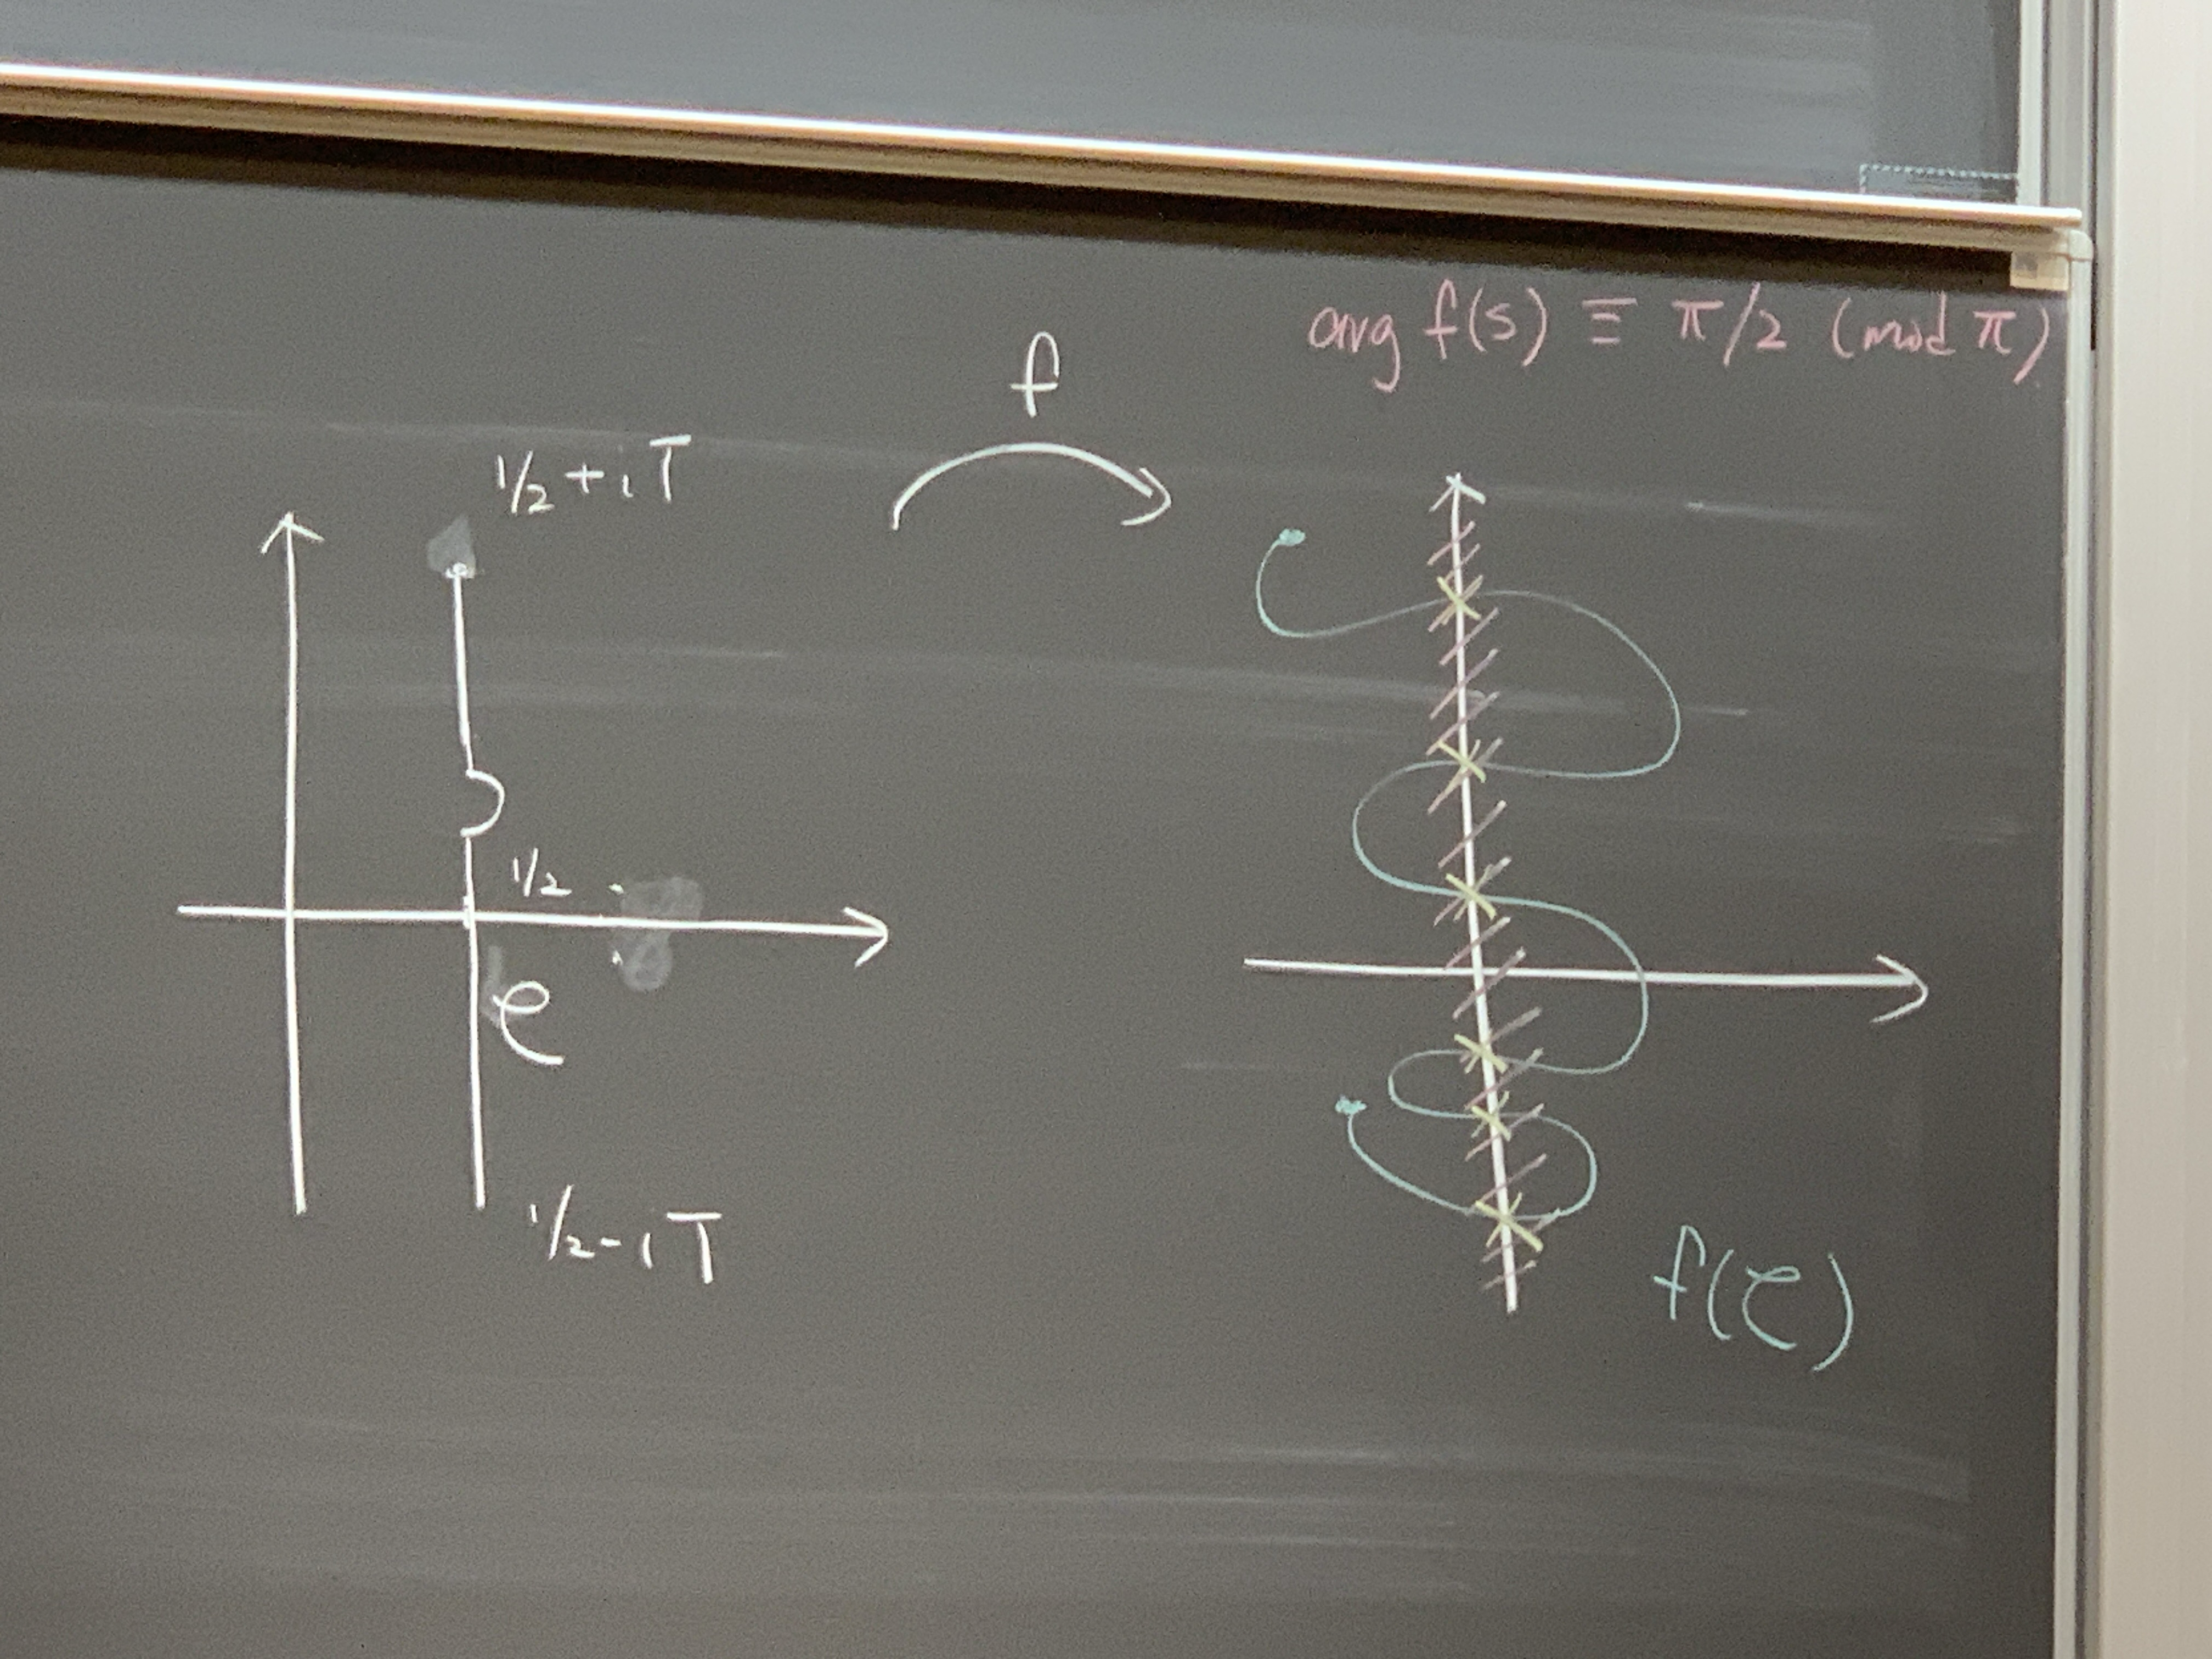 arg f(s) ≡ π/2 (mod π)
f
1/2 + iT
1/2
C
1/2 - iT
f(C)